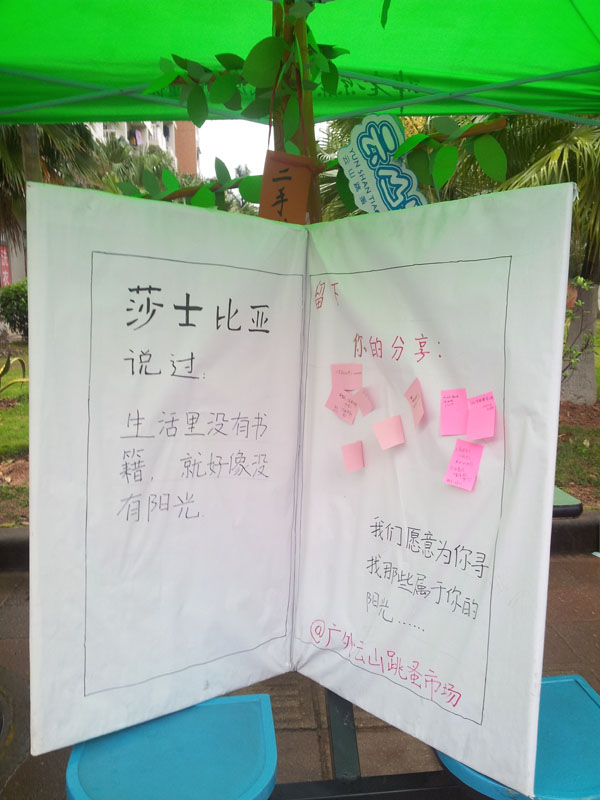 二手
YUN SHAN TIAO
云山跳蚤
莎士比亚
说过:
生活里没有书
籍，就好像没
有阳光.
留下
你的分享:
我们愿意为你寻
找那些属于你的
阳光......
@广外云山跳蚤市场